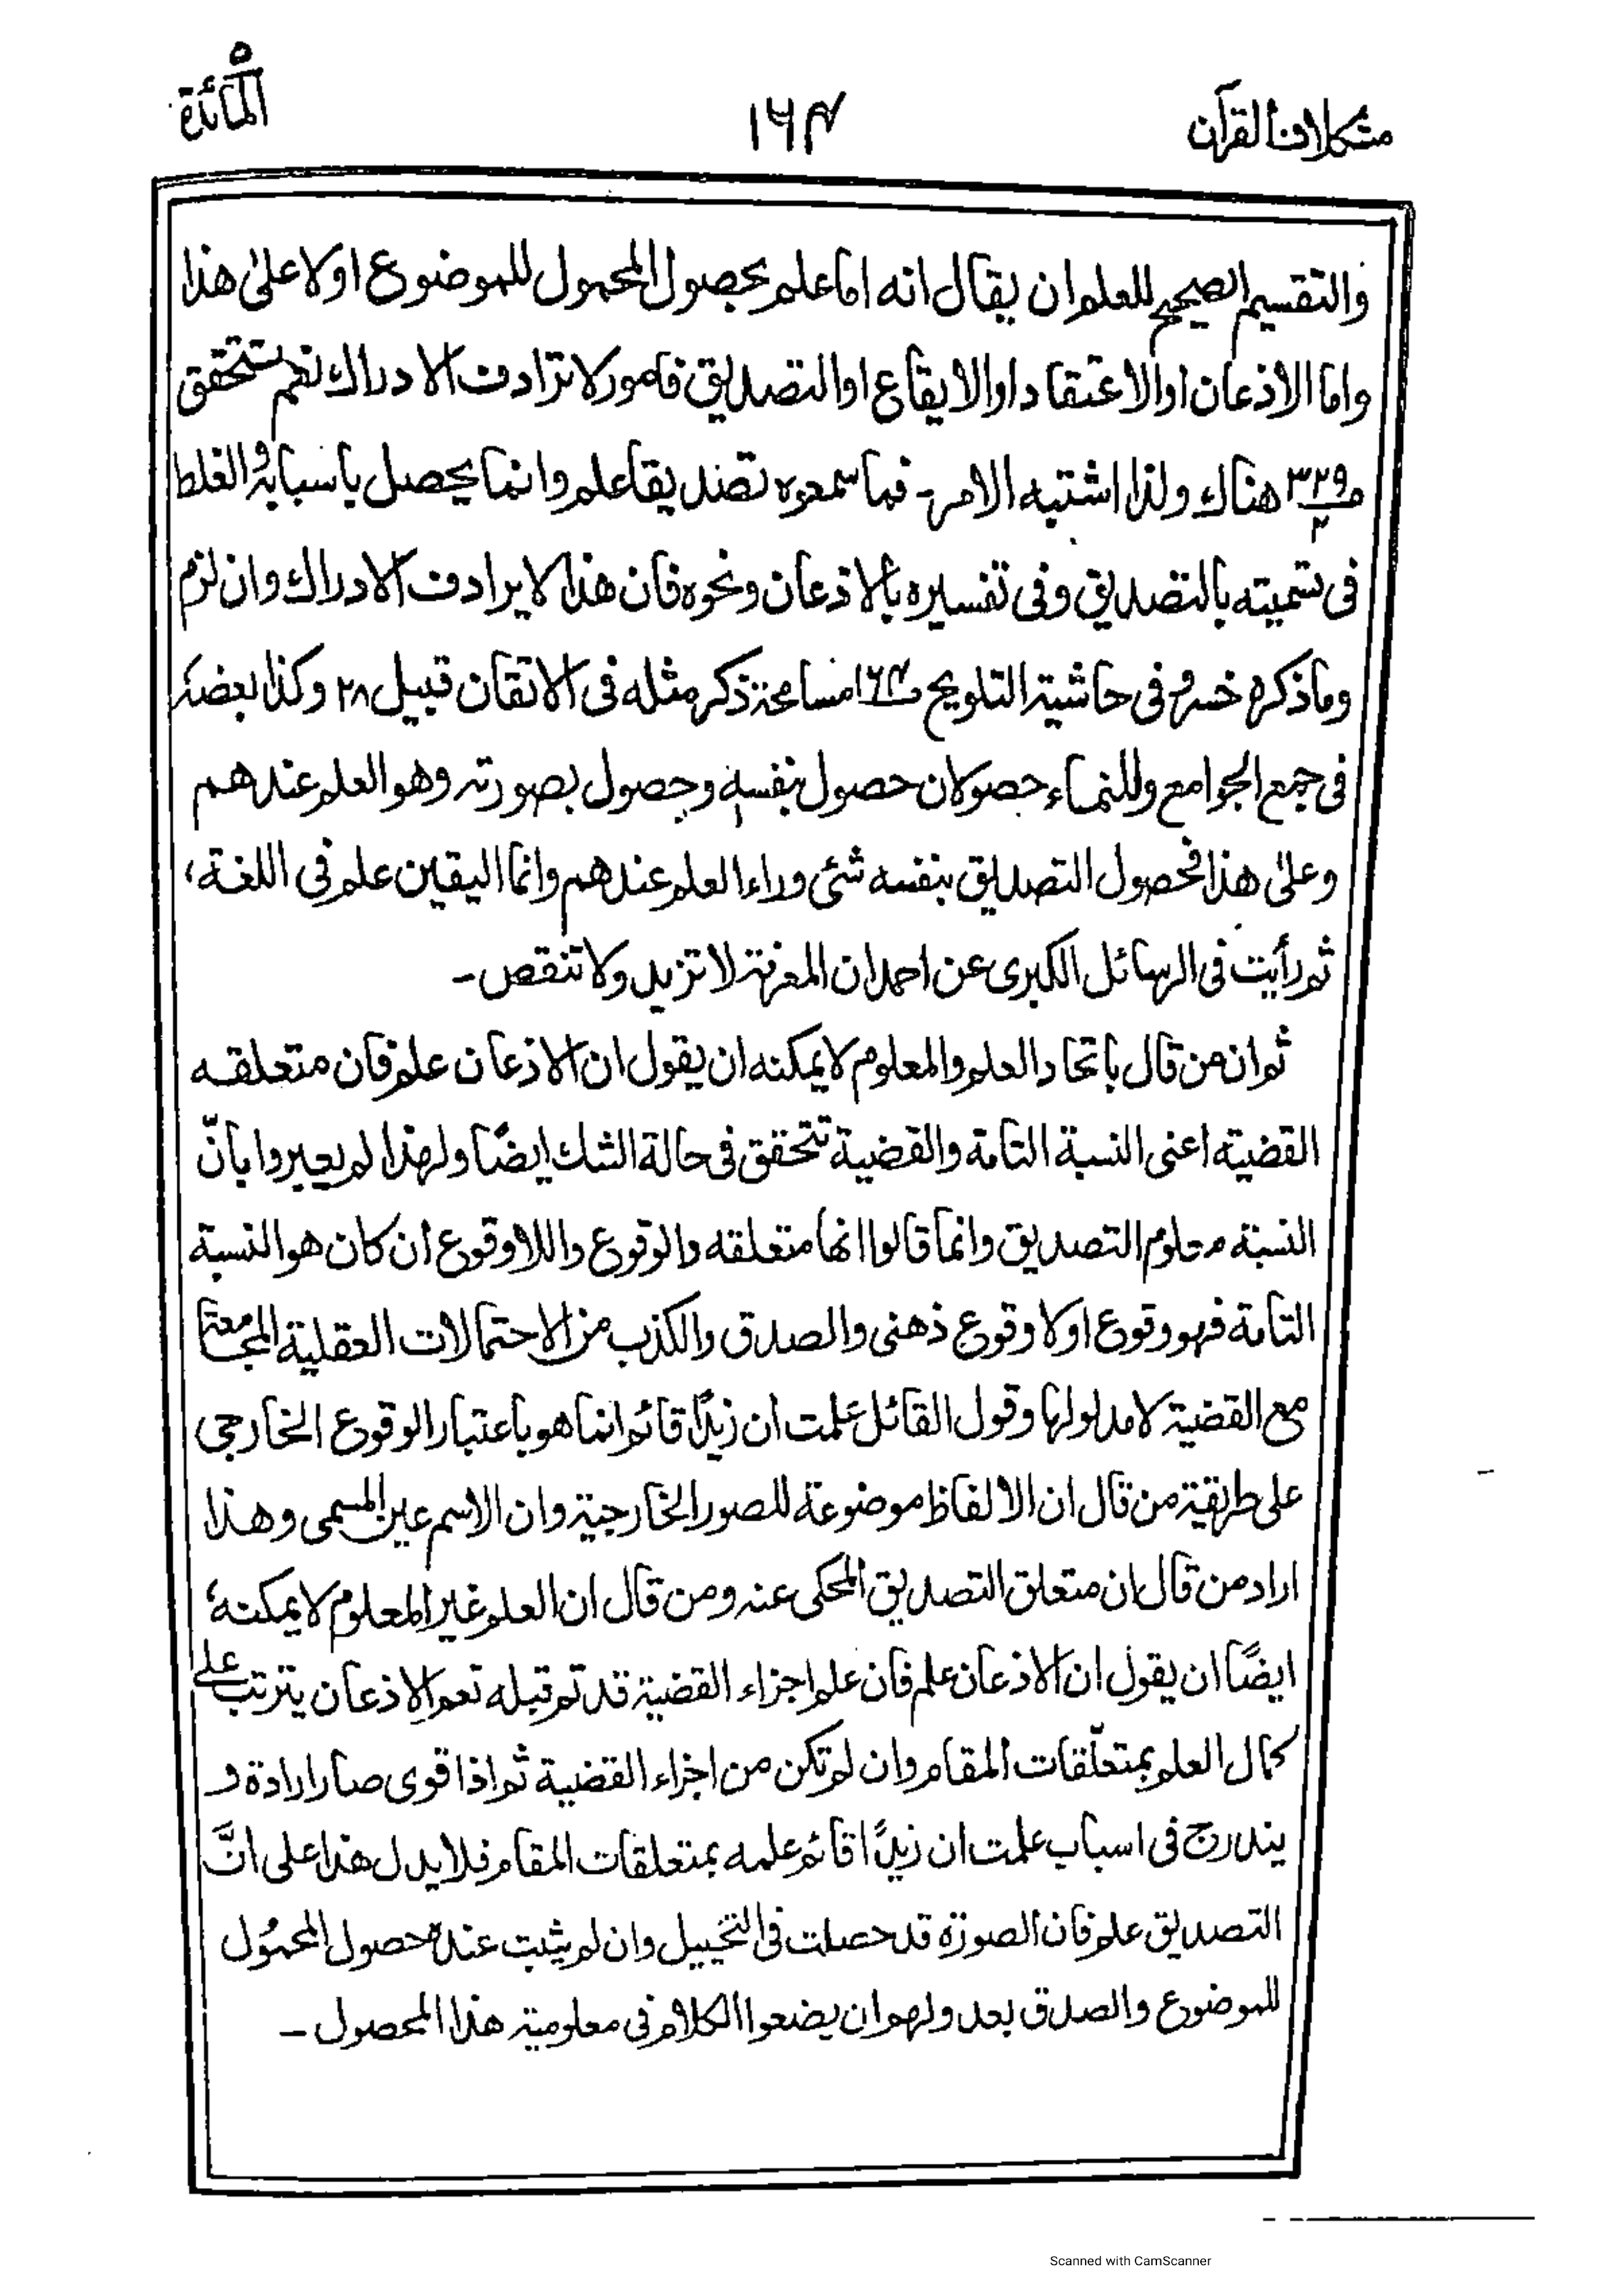 مشكلات القرآن
١٦٤
المائدة
والتقسيم الصحيح للعلم ان يقال انه اما علم بحصول المحمول للموضوع اولا على هذا
واما الاذعان اوالاعتقاد اوالايقاع اوالتصديق فامور لا ترادف الادراك نعم ستتحقق
ص٣٢٩ هناك ولذا اشتبه الامر۔ فما سموه تصديقا علم وانما يحصل باسبابه والغلط
فى تسميته بالتصديق وفى تفسيره بالاذعان ونحوه فان هذا لا يرادف الادراك وان لزم
وماذكره خسرو فى حاشية التلويح ص١٦٤ مسامحة ذكر مثله فى الاتقان قبيل ٢٨ وكذا بعضه
فى جمع الجوامع وللنماء حصولان حصول بنفسه وحصول بصورته وهو العلم عندهم
وعلى هذا فحصول التصديق بنفسه شئ وراء العلم عندهم وانما اليقين علم فى اللغة،
ثم رأيت فى الرسائل الكبرى عن احمد ان المعرفة لا تزيد ولا تنقص۔
ثم ان من قال باتحاد العلم والمعلوم لا يمكنه ان يقول ان الاذعان علم فان متعلقه
القضية اعنى النسبة التامة والقضية تتحقق فى حالة الشك ايضًا ولهذا لم يعبروا بانّ
النسبة معلوم التصديق وانما قالوا انها متعلقه والوقوع واللاوقوع ان كان هو النسبة
التامة فهو وقوع اولا وقوع ذهنى والصدق والكذب من الاحتمالات العقلية المجامعة
مع القضية لا مدلولها وقول القائل علمت ان زيدًا قائم انما هو باعتبار الوقوع الخارجى
على طريقة من قال ان الالفاظ موضوعة للصور الخارجية وان الاسم عين المسمى وهذا
اراد من قال ان متعلق التصديق المحكى عنه ومن قال ان العلم غير المعلوم لا يمكنه
ايضًا ان يقول ان الاذعان علم فان علم اجزاء القضية قد تم قبله نعم الاذعان يترتب على
كمال العلم بمتعلّقات المقام وان لم تكن من اجزاء القضية ثم اذا قوى صار ارادة و
يندرج فى اسباب علمت ان زيدًا قائم علمه بمتعلقات المقام فلا يدل هذا على انَّ
التصديق علم فان الصورة قد حصلت فى التخييل وان لم يثبت عنده حصول المحمول
للموضوع والصدق بعد ولهم ان يضعوا الكلام فى معلومية هذا المحصول۔
Scanned with CamScanner